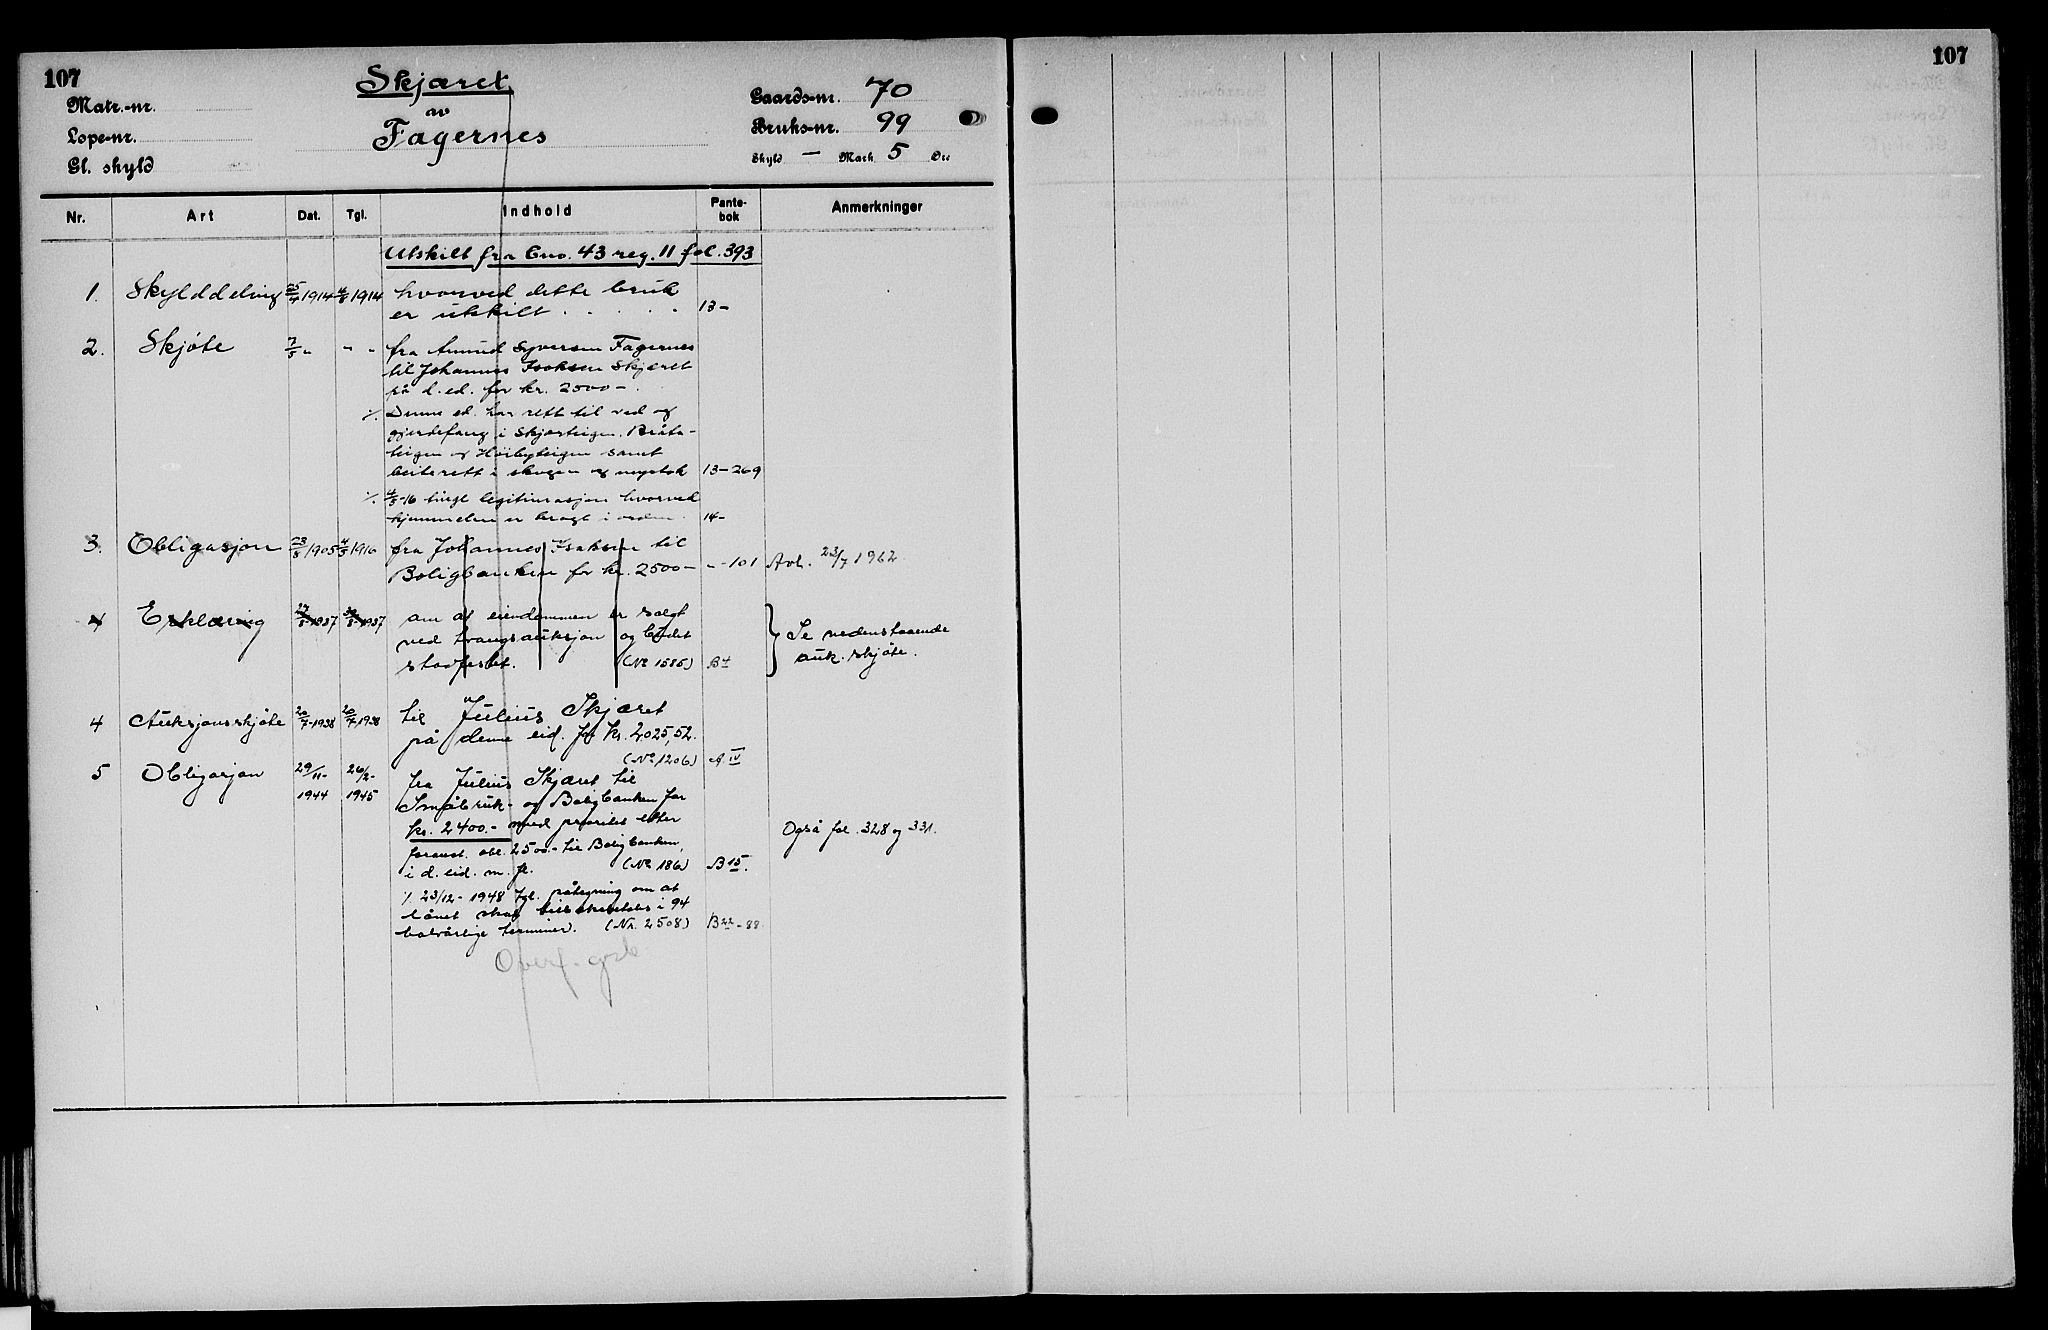 107
Skjæret
av
Fagernes
Matr.-nr.
Lope-nr.
Gl. skyld
Gaards-nr. 70
Bruks-nr. 99
Skyld — Mark 5 Øre
107
Nr. Art Dat. Tgl. Indhold Pante-bok Anmerkninger
Utskilt fra bno. 43 reg. 11 fol. 393
1. Skylddeling 25/4 1914 4/8 1914 hvorved dette bruk
er utskilt . . . . . 13-
2. Skjöte 7/5 " " " fra Amund Syversen Fagernes
til Johannes Isaksen Skjæret
på d. ed. for kr. 2500-
⁒ Denne ed. har rett til ved og
gjerdefang i Skjærteigen, Bråta-
teigen og Höibyteigen samt
beiterett i skogen og 13-269
⁒ 4/5-16 tingl. legitimasjon hvorved
hjemmelen er bragt i orden. 14-
3. Obligasjon 23/8 1905 4/5 1916 fra Johannes Isaksen til
Boligbanken for kr. 2500- "-101 Avl. 23/7 1962
4 Erklæring 27/8 1937 30/8 1937 om at eiendommen er solgt
ved tvangsauksjon og budet
stadfestet. (No 1585) B 4
} Se nedenstaaende
auk. skjøte.
4 Auksjonsskjøte 20/7-1938 20/7 1938 til Julius Skjæret
på denne eid. for kr. 2025,52.
(No 1206) A IV
5 Obligasjon 29/11- 1944 26/2- 1945 fra Julius Skjæret til
Småbruk- og Boligbanken for
kr. 2400.- med prioritet etter
foranst. obl. 2500.- til Boligbanken,
i d. eid. m. fl. (No 186) B 15.
Også fol. 328 og 331.
⁒ 23/12-1948 tgl. påtegning om at
lånet skal tilbakebetales i 94
halvårlige terminer. (Nr. 2508) B 22-88
Overf.